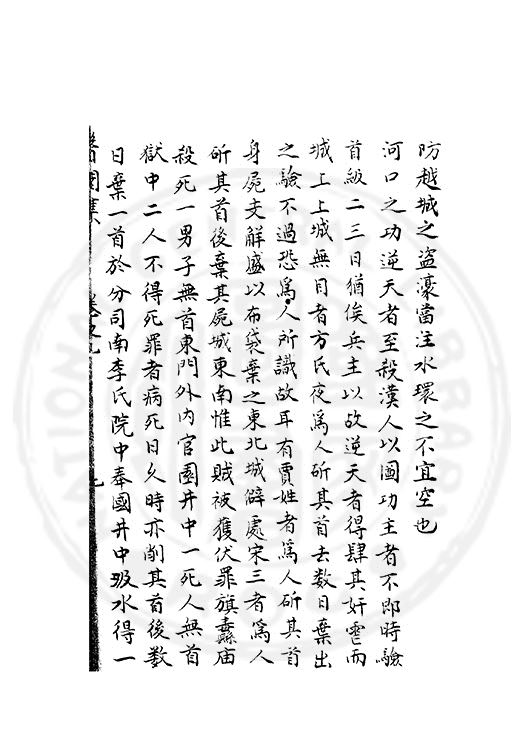 防越城之盜濠當注水環之不宜空也
河口之功逆天者至殺漢人以圖功主者不即時驗
首級二三日猶俟兵主以故逆天者得肆其奸宄而
城上上城無目者方氏夜為人斫其首去数日棄出
之驗不過恐為人所識故耳有賈姓者為人斫其首
身屍支解盛以布袋棄之東北城僻處宋三者為人
斫其首後棄其屍城東南惟此賊被獲伏罪旗纛庙
殺死一男子無首東門外内官園井中一死人無首
獄中二人不得死罪者病死日久時亦削其首後数
日棄一首於分司南李氏院中奉國井中汲水得一